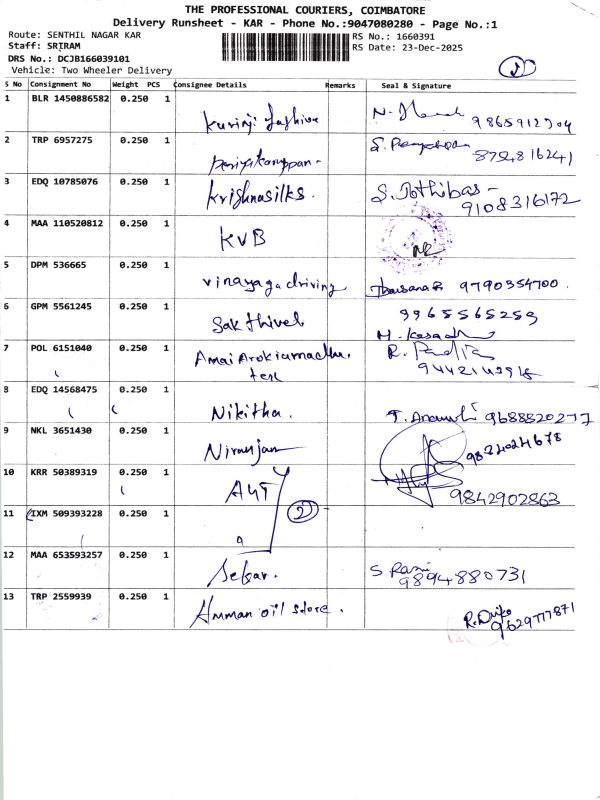 THE PROFESSIONAL COURIERS, COIMBATORE
Delivery Runsheet - KAR - Phone No.:9047080280 - Page No.:1
Route: SENTHIL NAGAR KAR RS No.: 1660391
Staff: SRIRAM RS Date: 23-Dec-2025
DRS No.: DCJB166039101
Vehicle: Two Wheeler Delivery
S No Consignment No Weight PCS Consignee Details Remarks Seal & Signature
1 BLR 1450886582 0.250 1 Kurinji fashion 9865912704
2 TRP 6957275 0.250 1 8754816241
3 EDQ 10785076 0.250 1 Krishnasilks. S. Jothibas 9108316172
4 MAA 110520812 0.250 1 KVB
5 DPM 536665 0.250 1 Vinayaga driving 9790354700.
6 GPM 5561245 0.250 1 Sakthivel 9965565259
7 POL 6151040 0.250 1
8 EDQ 14568475 0.250 1 Nikitha. 9688820277
9 NKL 3651430 0.250 1 Niranjan
10 KRR 50389319 0.250 1 9842902863
11 IXM 509393228 0.250 1 2
12 MAA 653593257 0.250 1 9894880731
13 TRP 2559939 0.250 1 Amman oil store. 9629777871